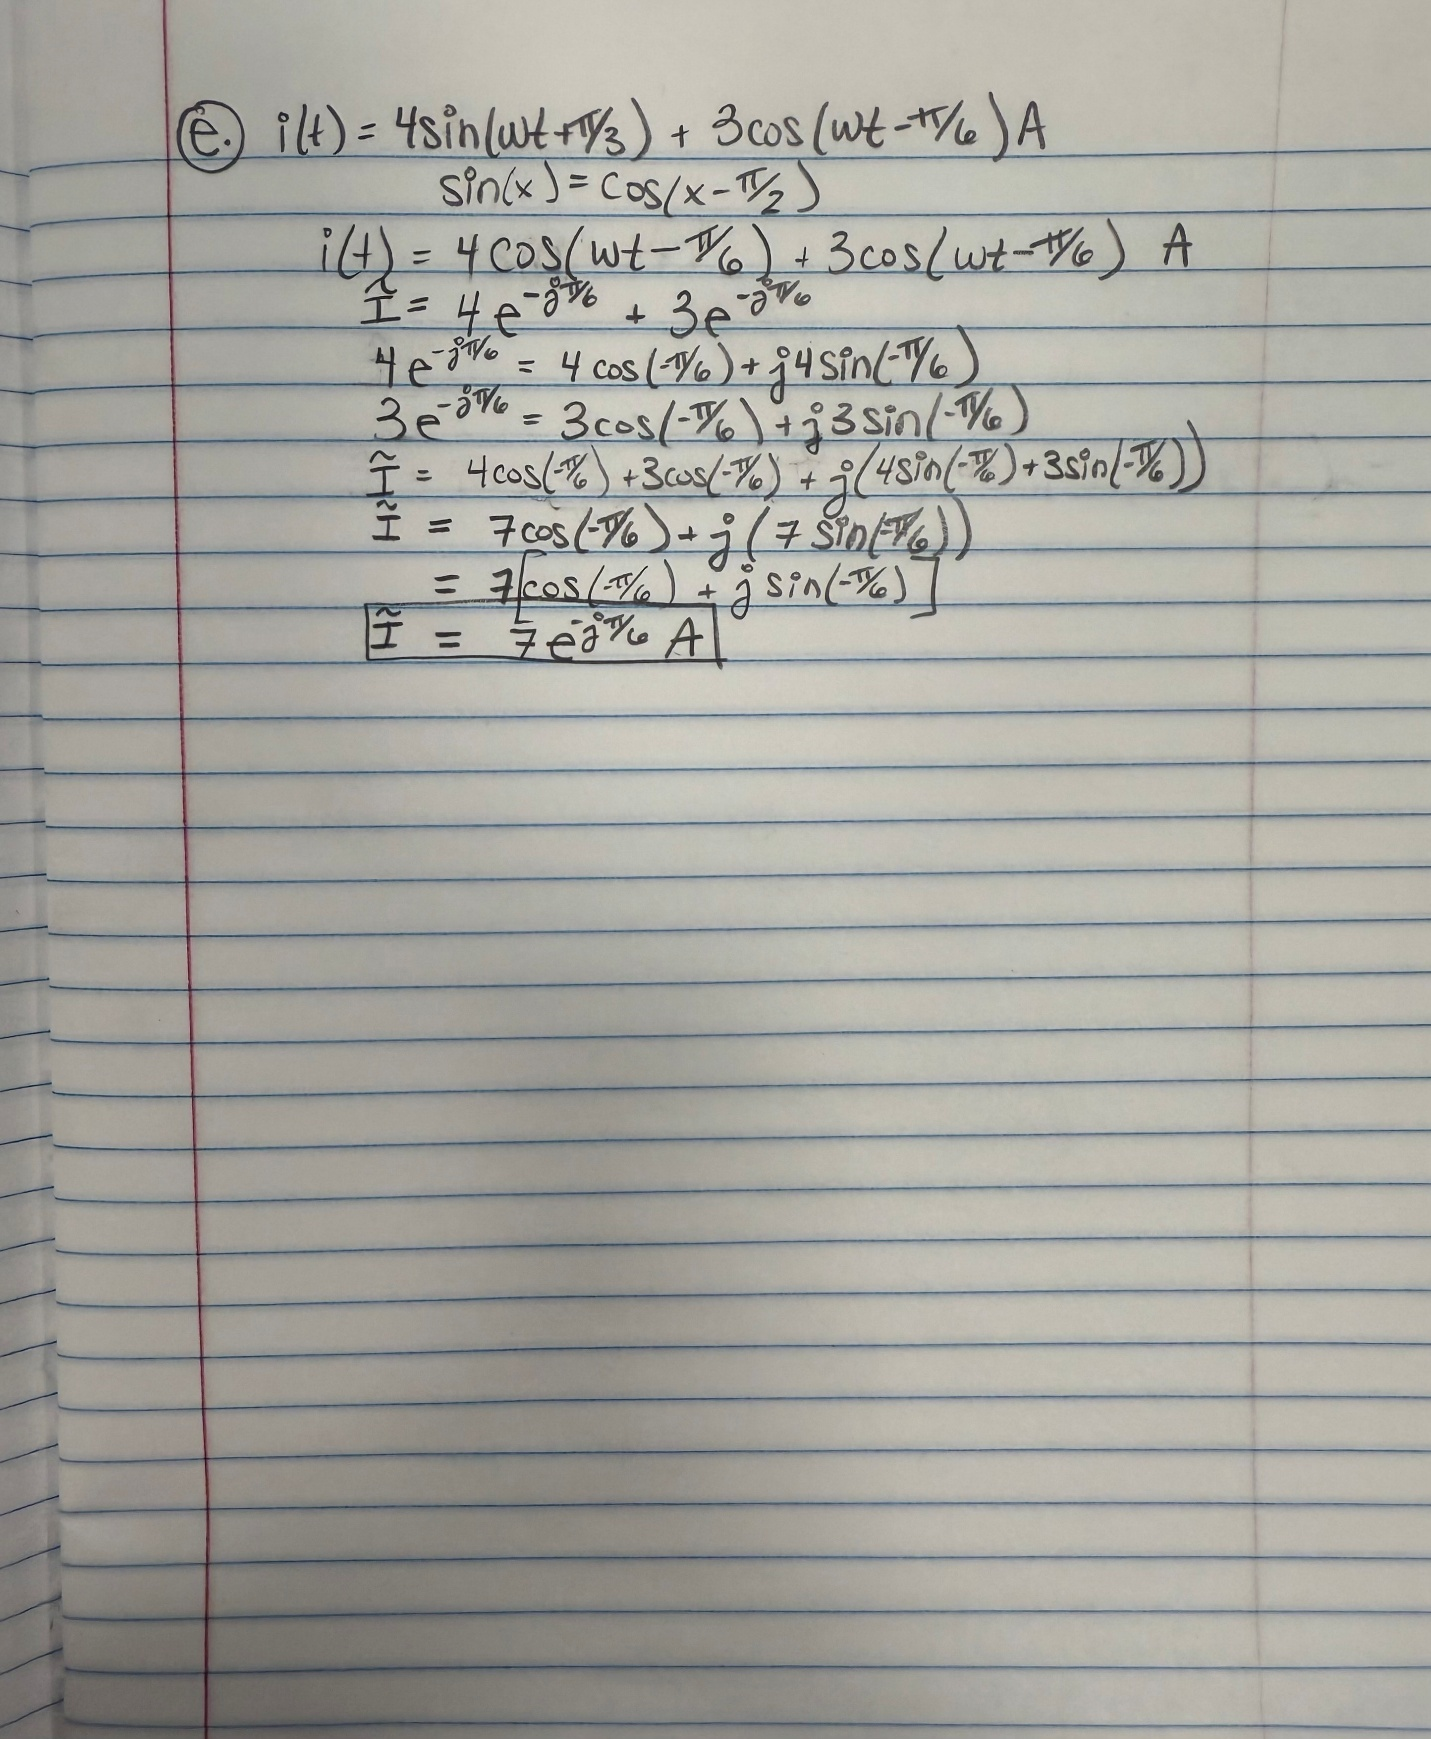 e. i(t) = 4sin(wt+π/3) + 3cos(wt-π/6) A
sin(x) = cos(x-π/2)
i(t) = 4cos(wt-π/6) + 3cos(wt-π/6) A
Ĩ = 4e^-jπ/6 + 3e^-jπ/6
4e^-jπ/6 = 4cos(-π/6) + j4sin(-π/6)
3e^-jπ/6 = 3cos(-π/6) + j3sin(-π/6)
Ĩ = 4cos(-π/6) + 3cos(-π/6) + j(4sin(-π/6) + 3sin(-π/6))
Ĩ = 7cos(-π/6) + j(7sin(-π/6))
= 7[cos(-π/6) + jsin(-π/6)]
Ĩ = 7e^-jπ/6 A